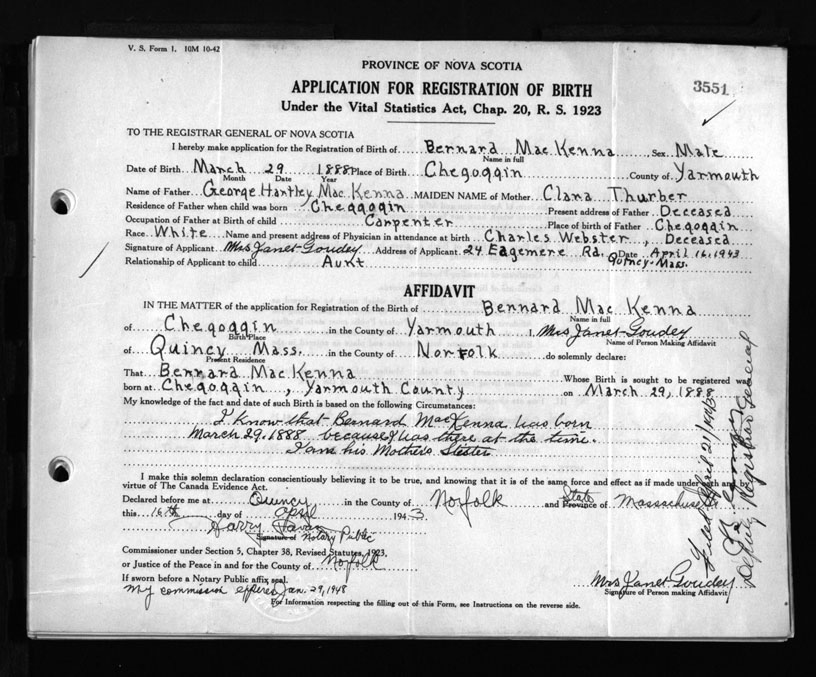 V. S. Form 1. 10M 10-42
PROVINCE OF NOVA SCOTIA
APPLICATION FOR REGISTRATION OF BIRTH
3551
Under the Vital Statistics Act, Chap. 20, R. S. 1923
TO THE REGISTRAR GENERAL OF NOVA SCOTIA
I hereby make application for the Registration of Birth of Bernard Mac Kenna Sex Male
Name in full
Date of Birth March 29 1888 Place of Birth Chegoggin County of Yarmouth
Month Date Year
Name of Father George Hartley Mac Kenna MAIDEN NAME of Mother Clara Thurber
Residence of Father when child was born Cheggogin Present address of Father Deceased
Occupation of Father at Birth of child Carpenter Place of birth of Father Chegoggin
Race White Name and present address of Physician in attendance at birth Charles Webster, Deceased
Signature of Applicant Mrs Janet Goudey Address of Applicant 24 Edgemere Rd. Date April 16, 1943
Quincy-Mass.
Relationship of Applicant to child Aunt
AFFIDAVIT
IN THE MATTER of the application for Registration of the Birth of Bernard Mac Kenna
Name in full
of Chegoggin in the County of Yarmouth I, Mrs Janet Goudey
Birth Place Name of Person Making Affidavit
of Quincy Mass. in the County of Norfolk do solemnly declare:
Present Residence
That Bernard Mac Kenna Whose Birth is sought to be registered was
born at Chegoggin, Yarmouth County on March 29, 1888
My knowledge of the fact and date of such Birth is based on the following Circumstances:
I know that Bernard MacKenna was born
March 29, 1888 because I was there at the time.
I am his Mothers Sister
I make this solemn declaration conscientiously believing it to be true, and knowing that it is of the same force and effect as if made under oath and
virtue of The Canada Evidence Act.
Declared before me at Quincy in the County of Norfolk State and Province of Massachusetts
this 16th day of April 1943
Harry
Signature of Notary Public
Commissioner under Section 5, Chapter 38, Revised Statutes, 1923,
or Justice of the Peace in and for the County of Norfolk
If sworn before a Notary Public affix seal.
My commission expires Jan. 29, 1948
Mrs Janet Goudey
Signature of Person making Affidavit
For Information respecting the filling out of this Form, see Instructions on the reverse side.
Filed April 21/
Deputy Registrar General